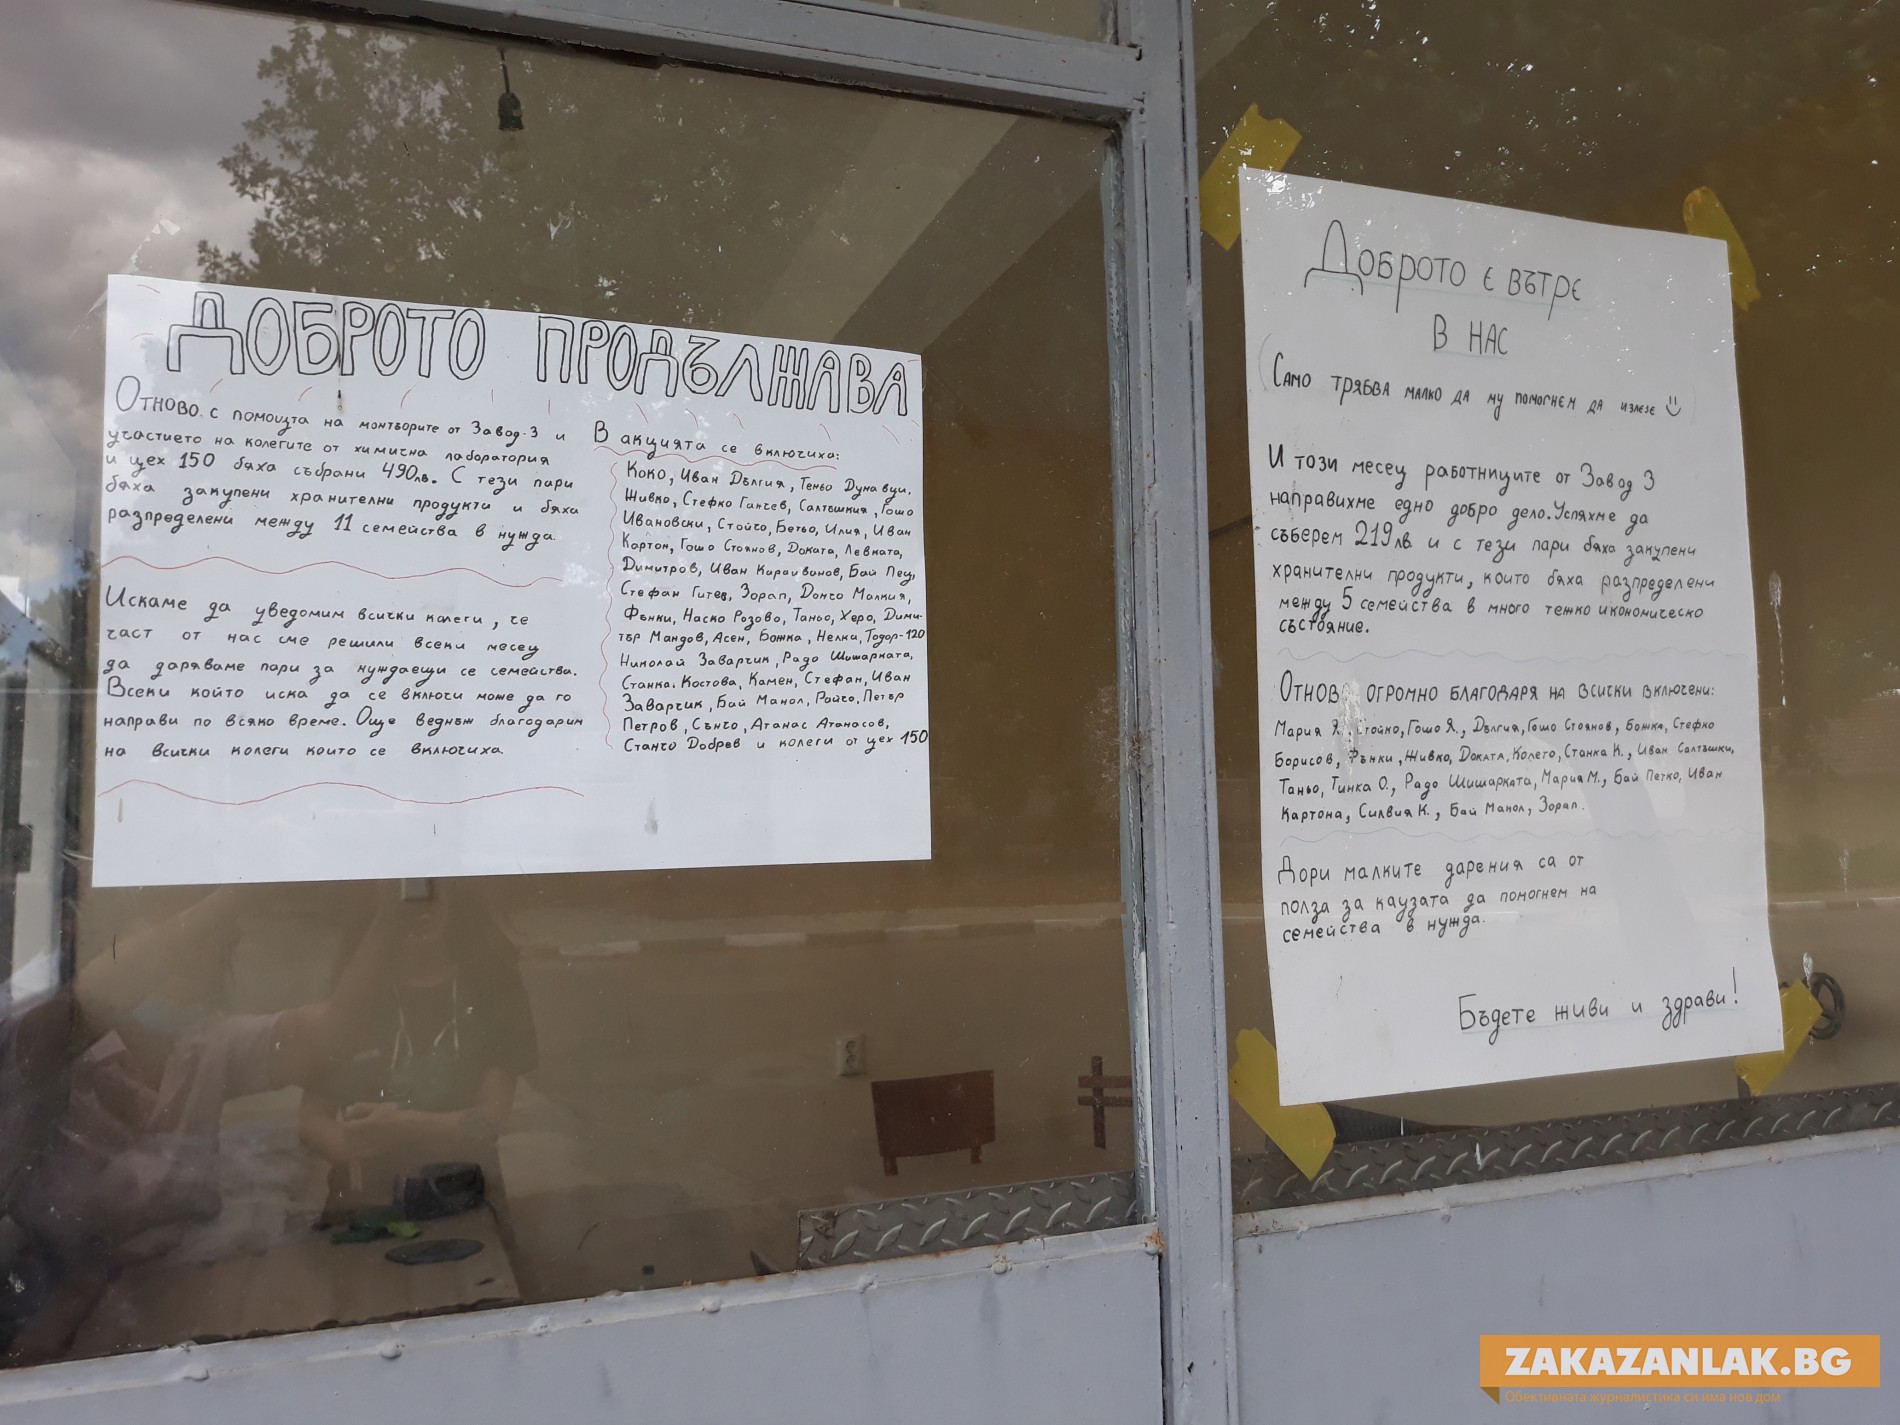 ДОБРОТО ПРОДЪЛЖАВА
Отново с помощта на монтьорите от Завод-3 и
участието на колегите от химична лаборатория
и цех 150 бяха събрани 490лв. С тези пари
бяха закупени хранителни продукти и бяха
разпределени между 11 семейства в нужда.
Искаме да уведомим всички колеги, че
част от нас сме решили всеки месец
да даряваме пари за нуждаещи се семейства.
Всеки който иска да се включи може да го
направи по всяко време. Още веднъж благодарим
на всички колеги които се включиха.
В акцията се включиха:
Коко, Иван Дългия, Теньо Дунавци,
Живко, Стефко Ганчев, Салтъшкия, Гошо
Ивановски, Стойчо, Бетьо, Илия, Иван
Картон, Гошо Стоянов, Доката, Левката,
Димитров, Иван Караиванов, Бай Пец,
Стефан Гитев, Зорап, Дончо Малкия,
Фънки, Наско Розово, Таньо, Херо, Дими-
тър Мандов, Асен, Божка, Нелка, Тодор-120
Николай Заварчик, Радо Шишарката,
Станка Костова, Камен, Стефан, Иван
Заварчик, Бай Манол, Райчо, Петър
Петров, Сънчо, Атанас Атанасов,
Станчо Добрев и колеги от цех 150
Доброто е вътре
в нас
(Само трябва малко да му помогнем да излезе)
И този месец работниците от Завод 3
направихме едно добро дело. Успяхме да
съберем 219лв и с тези пари бяха закупени
хранителни продукти, които бяха разпределени
между 5 семейства в много тежко икономическо
състояние.
Отново огромно благодаря на всички включени:
Мария Я., Стойко, Гошо Я., Дългия, Гошо Стоянов, Божка, Стефко
Борисов, Фънки, Живко, Доката, Колето, Станка К., Иван Салтъшки,
Таньо, Тинка О., Радо Шишарката, Мария М., Бай Петко, Иван
Картона, Силвия К., Бай Манол, Зорап.
Дори малките дарения са от
полза за каузата да помогнем на
семейства в нужда.
Бъдете живи и здрави!
ZAKAZANLAK.BG
Обективната журналистика си има нов дом